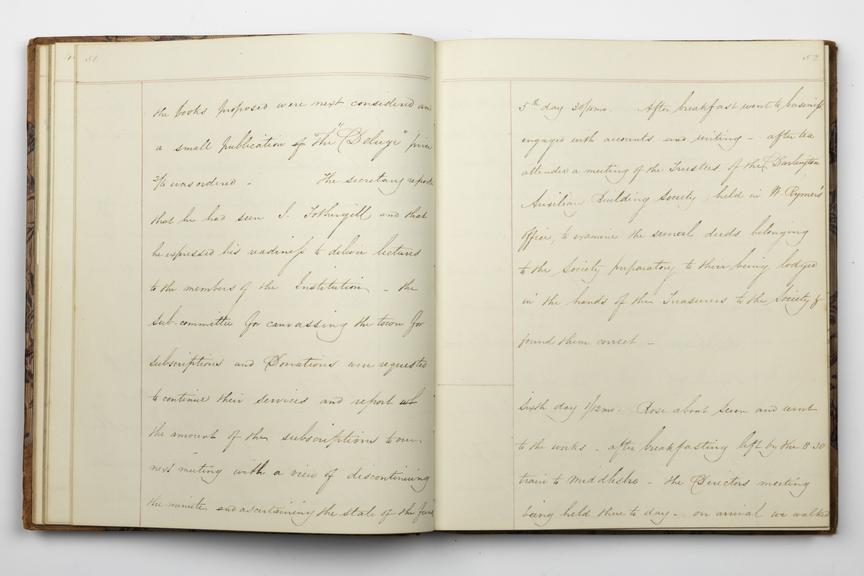 51
the books proposed were next considered and
a small publication of "The Deluge" price
2/6 was ordered. The secretary report
that he had seen J. Fothergill and that
he expressed his readiness to deliver lectures
to the members of the Institution - the
sub-committee for canvassing the town for
subscriptions and Donations were requested
to continue their services and report at
the amount of the subscriptions to our
next meeting with a view of discontinuing
the minute and ascertaining the state of the
52
5th day 30/11mo. After breakfast went to business
engaged with accounts and writing - after tea
attended a meeting of the Trustees of the Darlington
Auxiliary Building Society, held in W. Rymer's
Office, to examine the several deeds belonging
to the Society preparatory to their being lodged
in the hands of the Treasurers to the Society &
found them correct -
Sixth day 1/12mo. Rose about seven and went
to the works - after breakfasting left by the 8.30
train to Middlesbro - the Directors meeting
being held there to day - on arrival we walked